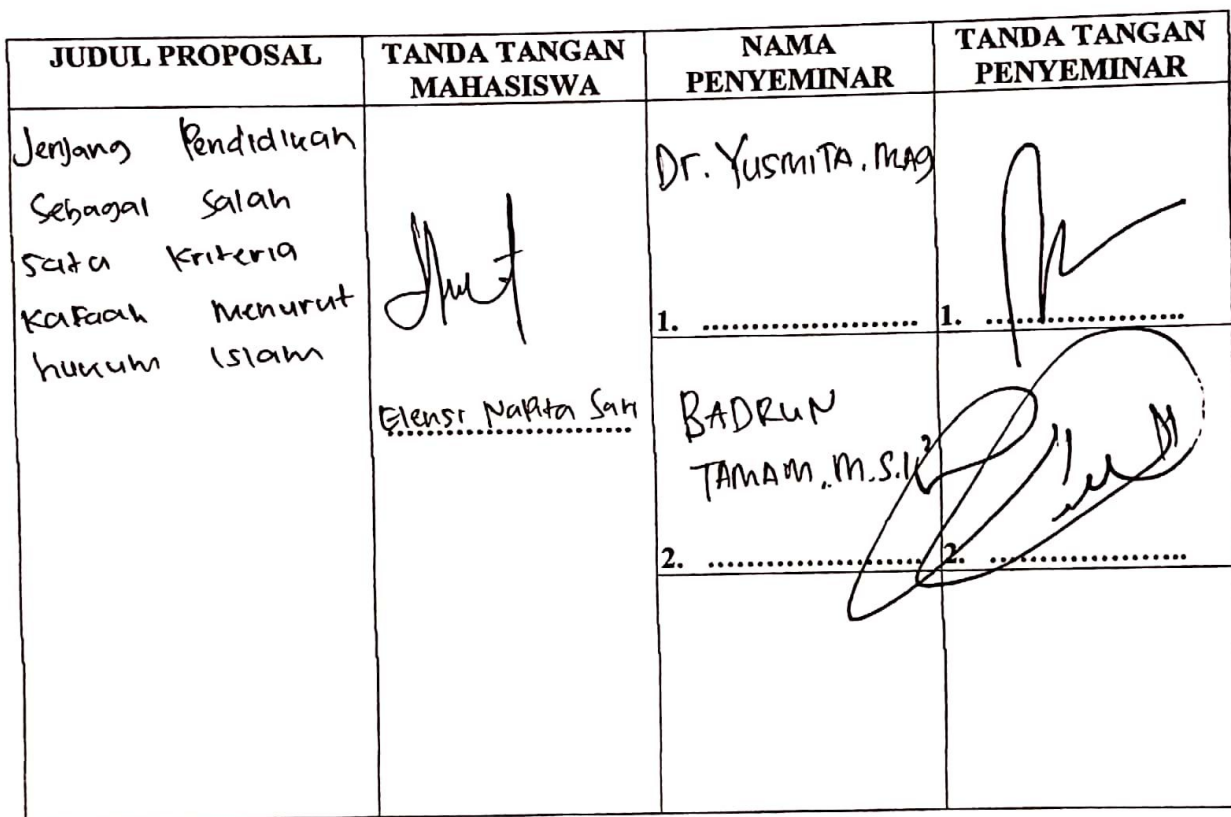 JUDUL PROPOSAL
TANDA TANGAN
MAHASISWA
NAMA
PENYEMINAR
TANDA TANGAN
PENYEMINAR
Jenjang Pendidikan
Sebagai Salah
Satu Kriteria
Kafaah Menurut
hukum Islam
Elensi Sari
Dr. YUSMITA, MAg
1. ....................
1. ....................
BADRUN
TAMAM, M.S.I
2. ....................
2. ....................